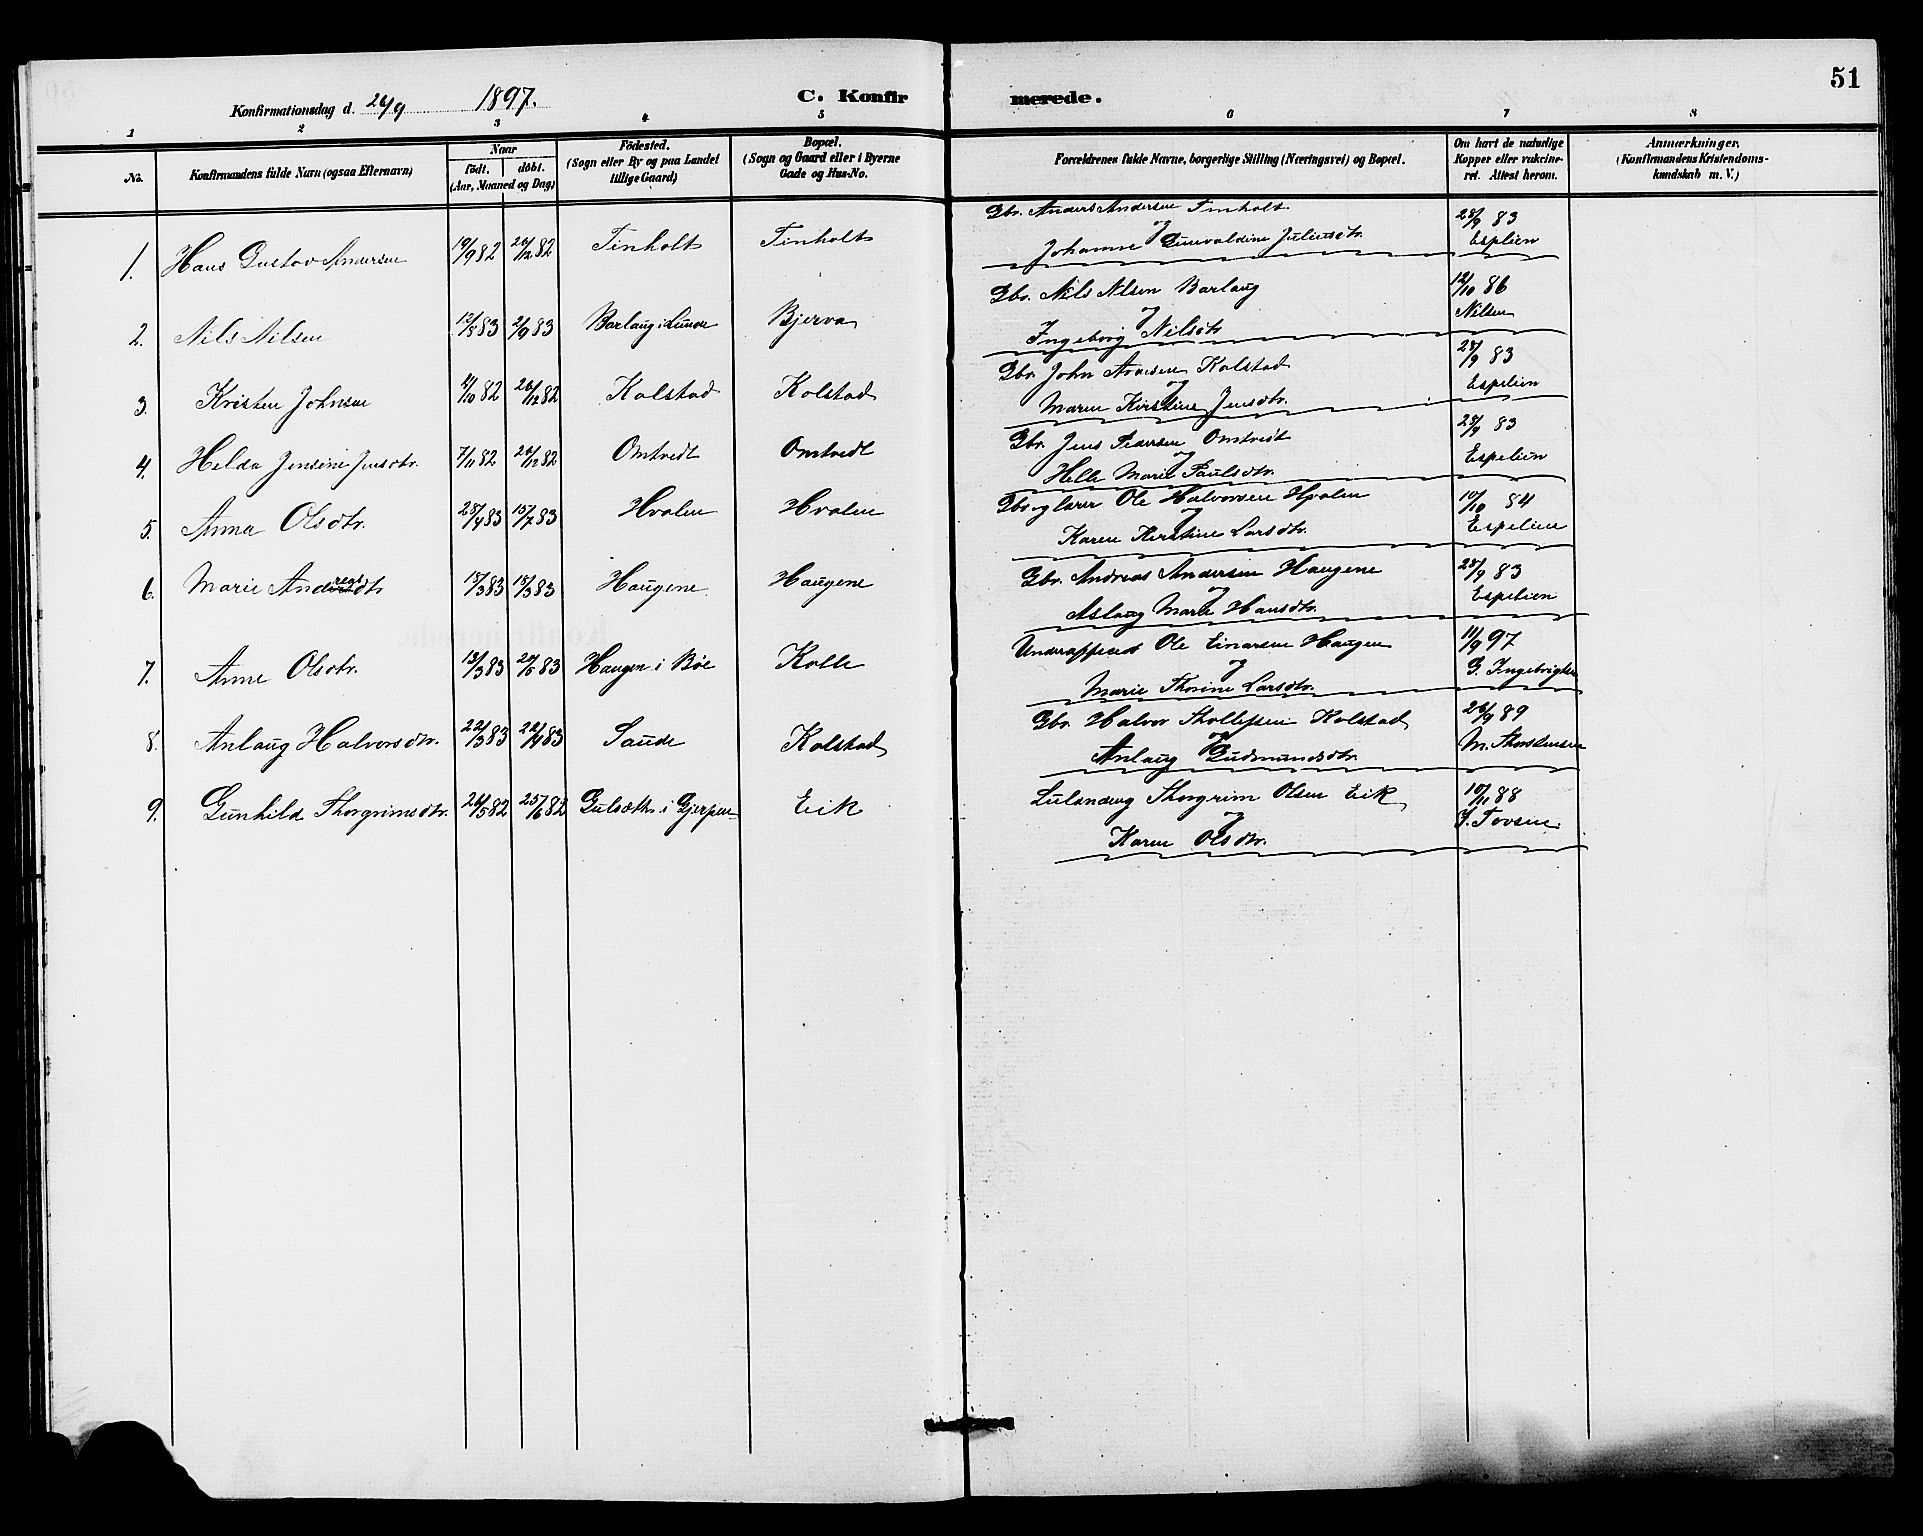 51
Konfirmationsdag d. 26/9 1897. C. Konfirmerede.
1 2 3 4 5 6 7 8
No. Konfirmandens fulde Navn (ogsaa Efternavn) Naar født. døbt. (Aar, Maaned og Dag) Fødested. (Sogn eller By og paa Landet tillige Gaard) Bopæl. (Sogn og Gaard eller i Byerne Gade og Hus-No. Forældrenes fulde Navne, borgerlige Stilling (Næringsvei) og Bopæl. Om havt de naturlige Kopper eller vakcineret. Attest herom. Anmærkninger. (Konfirmandens Kristendomskundskab m. V.)
Gbr. Anders Andersen Tinholt 28/9 83
1. Hans Gustav Andersen 19/9 82 26/12 82 Tinholt Tinholt og Espelien
Johanne Gunvaldine Juliusdtr.
Gbr. Nils Nilsen Barlaug 12/10 86
2. Nils Nilsen 12/5 83 2/9 83 Barlaug i Lunde Bjerva og Nilsen
Ingeborg Nilsdtr
Gbr. John Kolstad 28/9 83
3. Kristen Johnsen /10 82 26/12 82 Kolstad Kolstad og Espelien
Maren Kirstine Jensdtr.
Gbr. Jens Pedersen Omtvedt 28/9 83
4. Helda Jensine Jensdtr. 7/11 82 26/12 82 Omtvedt Omtvedt og Espelien
Helle Marie Paulsdtr.
Gbr. og lærer Ole Halvorsen Hvalen 10/10 84
5. Anna Olsdtr. 28/4 83 15/7 83 Hvalen Hvalen og Espelien
Karen Kirstine Larsdtr.
Gbr. Andreas Andersen Haugene 28/9 83
6. Marie Andreasdtr 13/3 83 18/3 83 Haugene Haugene og Espelien
Aslaug Marie Hansdtr.
Underofficer Ole Einarsen Haugen 11/9 97
7. Anne Olsdtr. 13/3 83 20/5 83 Haugen i Bøe Kolle og G. Ingebrigtsen
Marie Thorine Larsdtr.
Gbr. Halvor Thollefsen Kolstad 26/9 89
8. Anlaug Halvorsdtr. 22/3 83 22/4 83 Saude Kolstad og M. Thorstensen
Anlaug Gudmundsdtr.
Thorgrim Olsen Eik 10/11 88
9. Gunhild Thorgrimsdtr. 26/5 82 25/6 82 Gulseth i Gjerpen Eik og J. Tovsen
Karen Olsdtr.